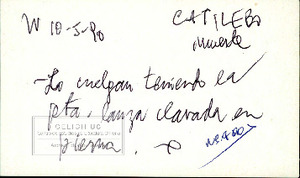 W 10-5-90
CATILEBO
muerte
-Lo cuelgan teniendo la
pta. lanza clavada en
pierna.
CELICH UC